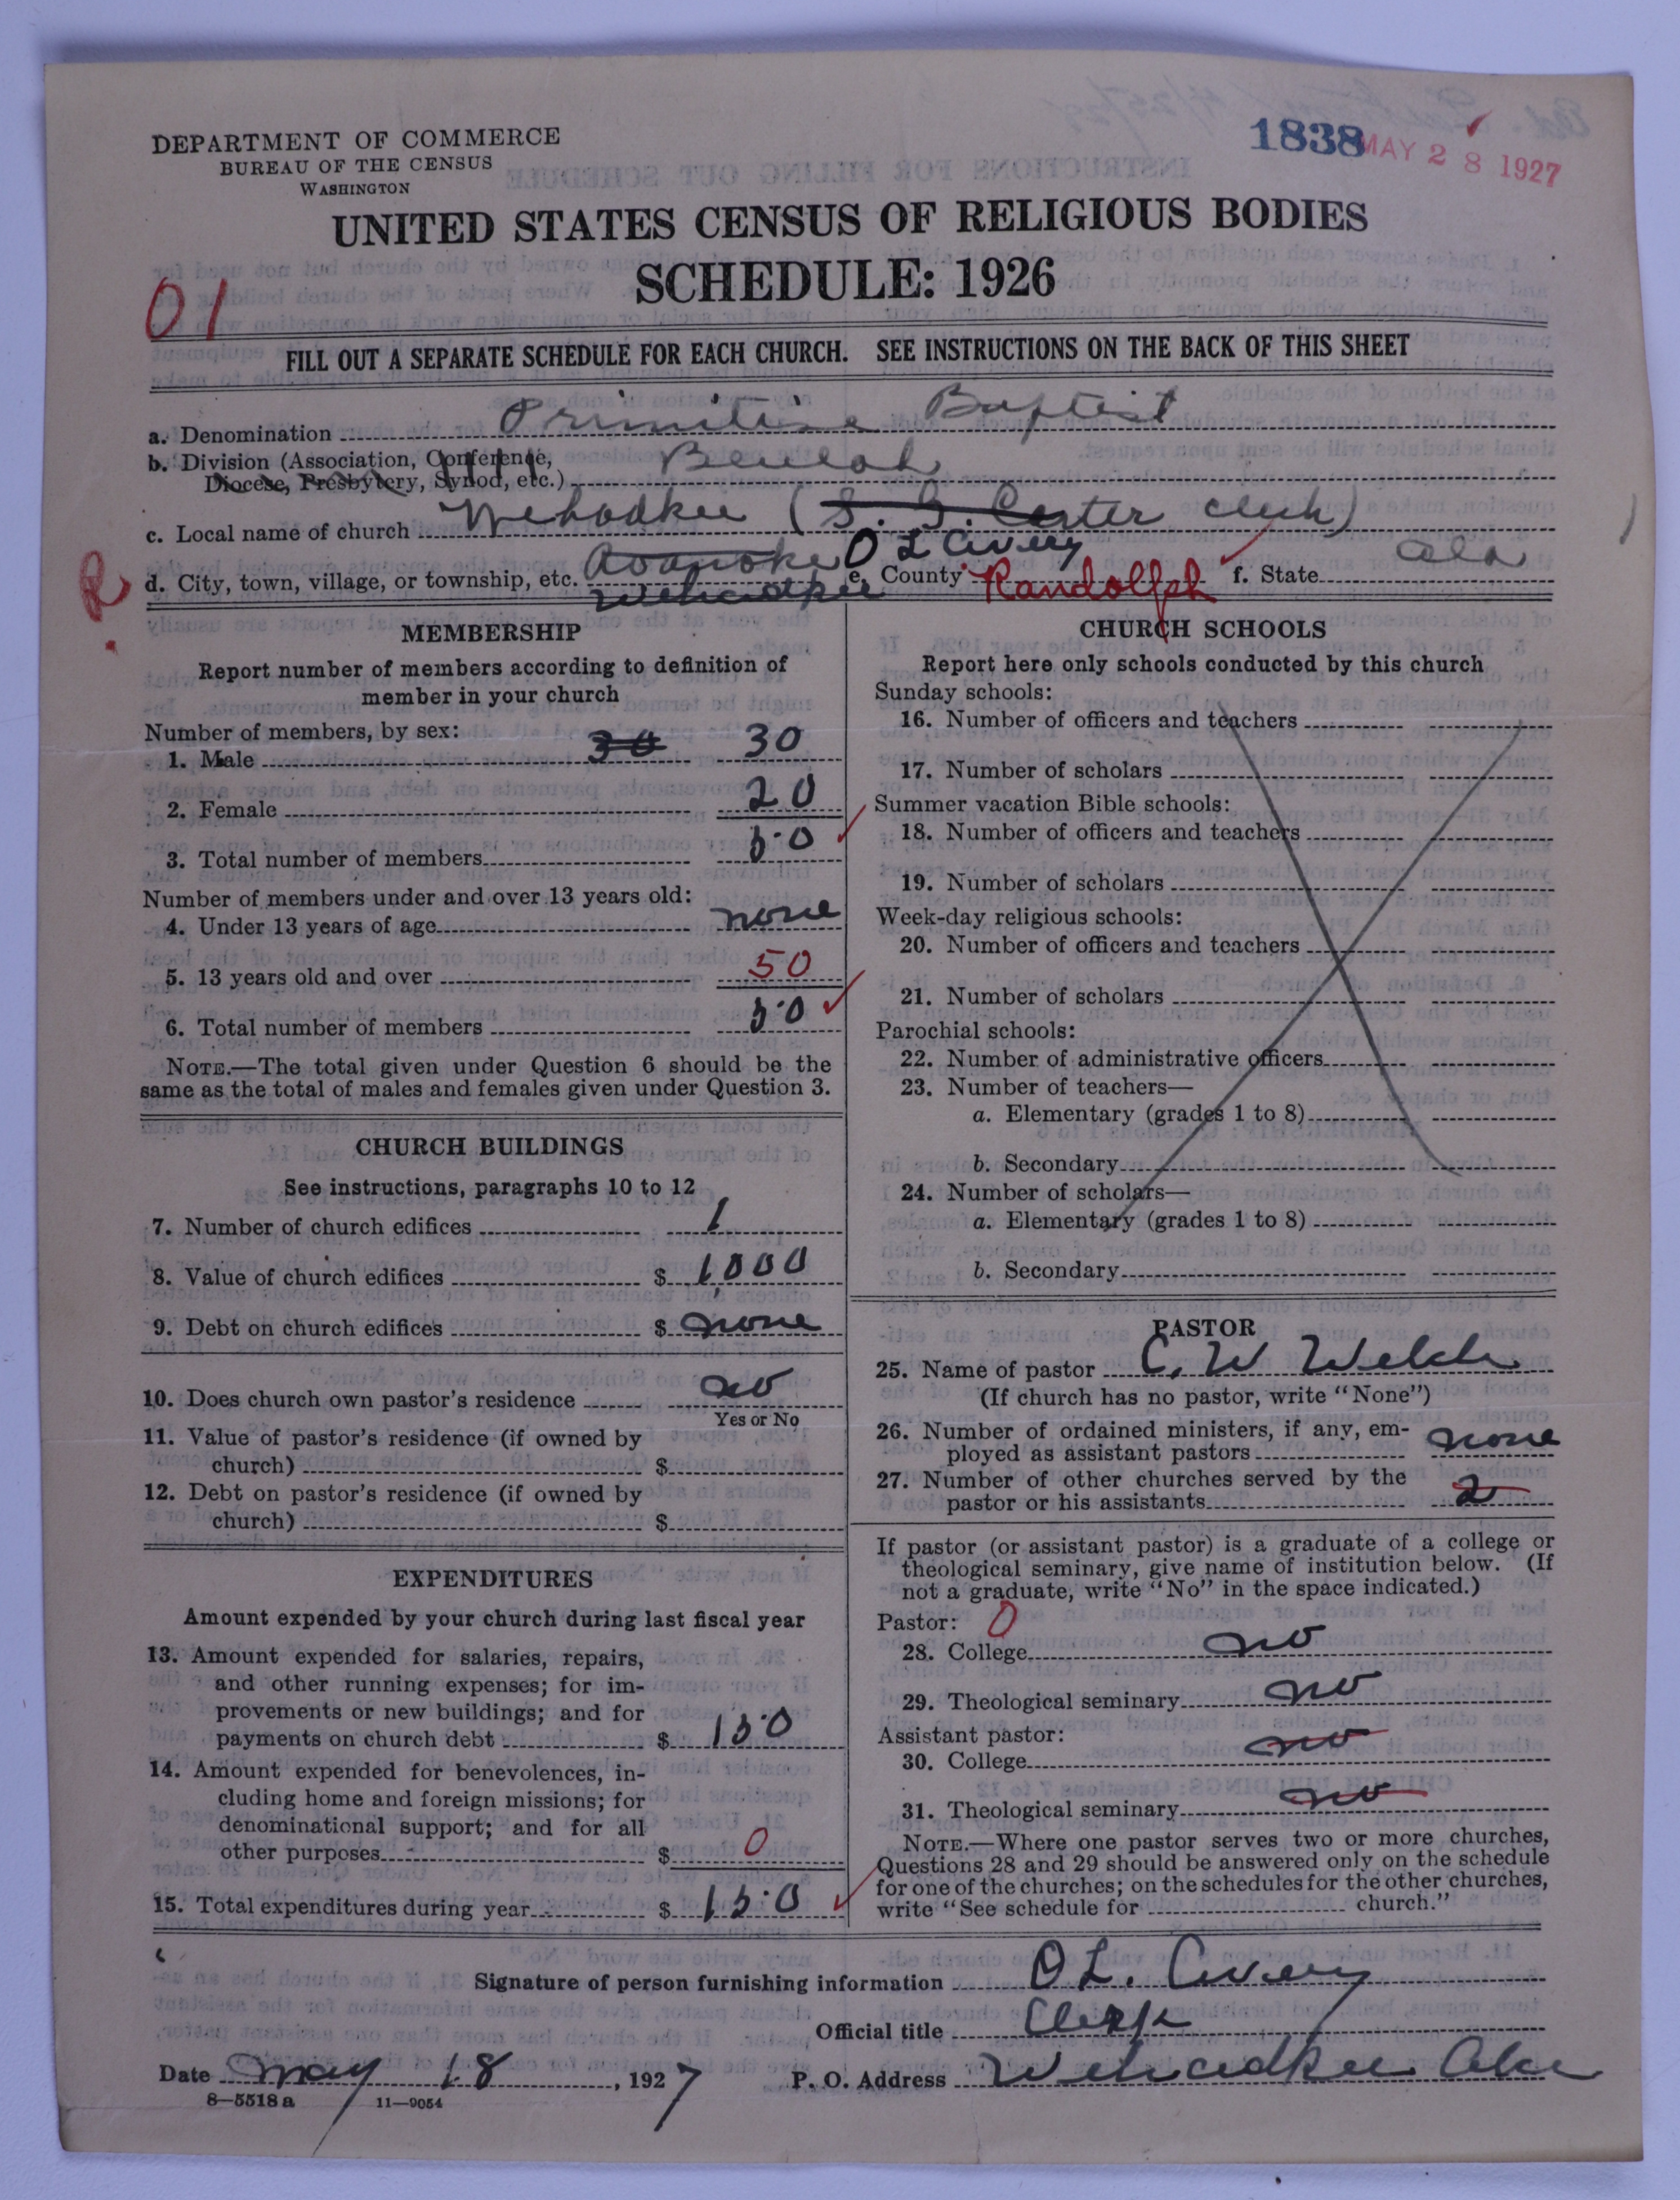 1838 MAY 28 1927
DEPARTMENT OF COMMERCE
BUREAU OF THE CENSUS
WASHINGTON
UNITED STATES CENSUS OF RELIGIOUS BODIES
SCHEDULE: 1926
01
FILL OUT A SEPARATE SCHEDULE FOR EACH CHURCH. SEE INSTRUCTIONS ON THE BACK OF THIS SHEET
a. Denomination Primitive Baptist
b. Division (Association, Conference,
Diocese, Presbytery, Synod, etc.) Beulah
c. Local name of church Wehadkee (S. J. Carter clerk)
O L Avery
d. City, town, village, or township, etc. Roanoke e. County Randolph f. State Ala
Wehadkee
R
MEMBERSHIP
Report number of members according to definition of
member in your church
Number of members, by sex:
1. Male 30 30
2. Female 20
3. Total number of members 50
Number of members under and over 13 years old:
4. Under 13 years of age none
5. 13 years old and over 50
6. Total number of members 50
NOTE.—The total given under Question 6 should be the
same as the total of males and females given under Question 3.
CHURCH BUILDINGS
See instructions, paragraphs 10 to 12
7. Number of church edifices 1
8. Value of church edifices $ 1,000
9. Debt on church edifices $ none
10. Does church own pastor's residence no
Yes or No
11. Value of pastor's residence (if owned by
church) $
12. Debt on pastor's residence (if owned by
church) $
EXPENDITURES
Amount expended by your church during last fiscal year
13. Amount expended for salaries, repairs,
and other running expenses; for im-
provements or new buildings; and for
payments on church debt $ 150
14. Amount expended for benevolences, in-
cluding home and foreign missions; for
denominational support; and for all
other purposes $ 0
15. Total expenditures during year $ 150
CHURCH SCHOOLS
Report here only schools conducted by this church
Sunday schools:
16. Number of officers and teachers
17. Number of scholars
Summer vacation Bible schools:
18. Number of officers and teachers
19. Number of scholars
Week-day religious schools:
20. Number of officers and teachers
21. Number of scholars
Parochial schools:
22. Number of administrative officers
23. Number of teachers—
a. Elementary (grades 1 to 8)
b. Secondary
24. Number of scholars—
a. Elementary (grades 1 to 8)
b. Secondary
PASTOR
25. Name of pastor C. W Welch
(If church has no pastor, write "None")
26. Number of ordained ministers, if any, em-
ployed as assistant pastors none
27. Number of other churches served by the
pastor or his assistants 2
If pastor (or assistant pastor) is a graduate of a college or
theological seminary, give name of institution below. (If
not a graduate, write "No" in the space indicated.)
Pastor: 0
28. College no
29. Theological seminary no
Assistant pastor:
30. College no
31. Theological seminary no
NOTE.—Where one pastor serves two or more churches,
Questions 28 and 29 should be answered only on the schedule
for one of the churches; on the schedules for the other churches,
write "See schedule for church."
Signature of person furnishing information O L. Avery
Official title Clerk
Date May 18, 1927 P. O. Address Wehadkee Ala
8—5518 a 11—9054